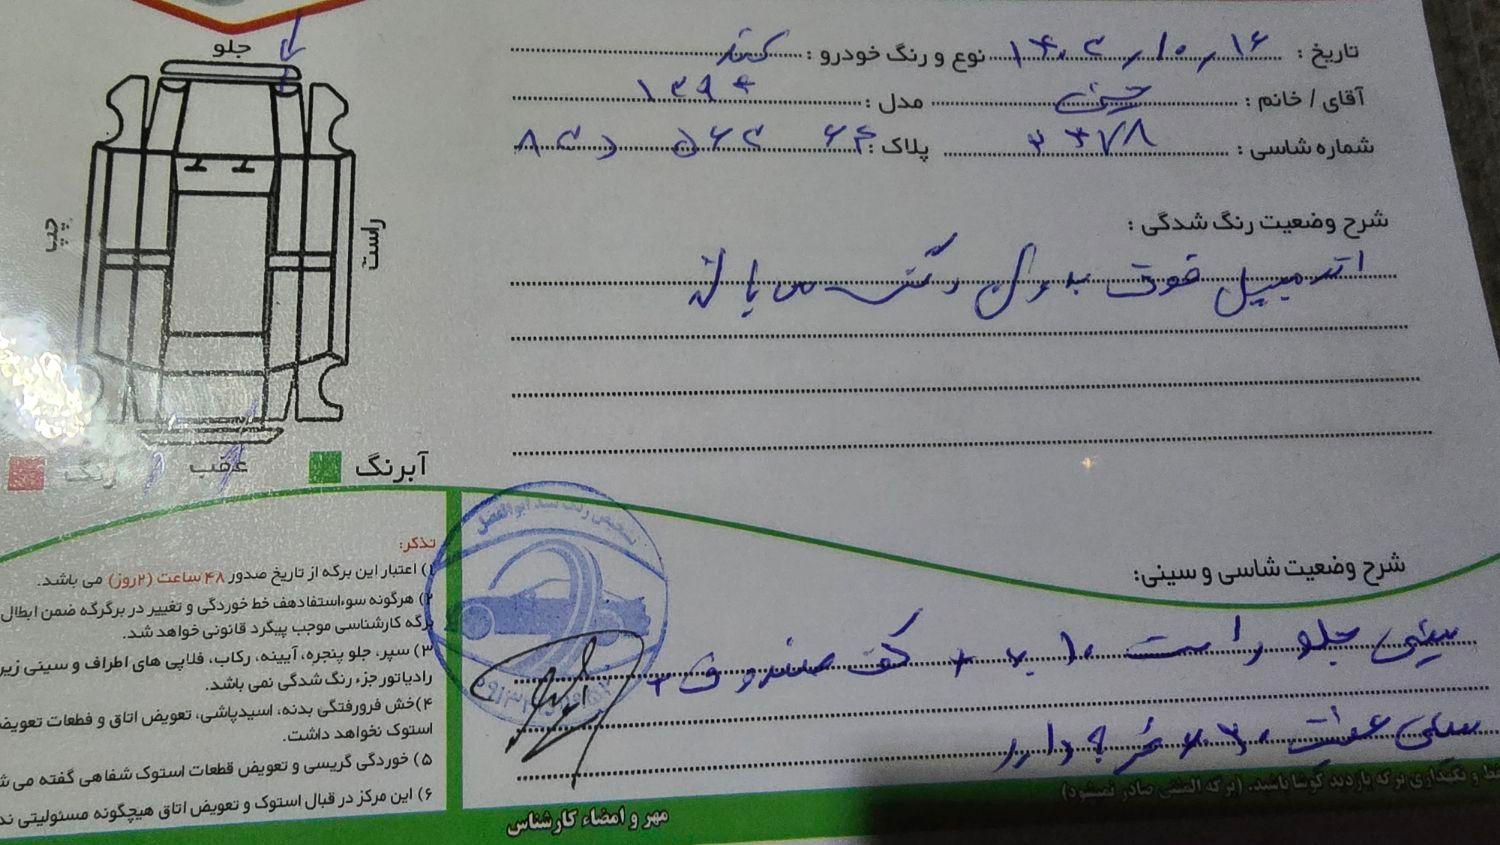 تاریخ : ۱۴۰۲/۱۰/۱۶ نوع و رنگ خودرو :
آقای / خانم : مدل : ۱۳۹۶
شماره شاسی : ۳۳۷۸ پلاک :
شرح وضعیت رنگ شدگی :
اتومبیل فوق بدون رنگ
جلو
چپ
راست
عقب
آبرنگ
رنگ
شرح وضعیت شاسی و سینی:
سینی جلو راست + کف صندوق +
سینی عقب دارد
تذکر:
۱) اعتبار این برگه از تاریخ صدور ۴۸ ساعت (۲روز) می باشد.
۲) هرگونه سوءاستفادهف خط خوردگی و تغییر در برگرگه ضمن ابطال
برگه کارشناسی موجب پیگرد قانونی خواهد شد.
۳) سپر، جلو پنجره، آیینه، رکاب، فلاپی های اطراف و سینی زیر
رادیاتور جزء رنگ شدگی نمی باشد.
۴)خش فرورفتگی بدنه، اسیدپاشی، تعویض اتاق و قطعات تعویض
استوک نخواهد داشت.
۵) خوردگی گریسی و تعویض قطعات استوک شفاهی گفته می
۶) این مرکز در قبال استوک و تعویض اتاق هیچگونه مسئولیتی
تشخیص رنگ سید ابوالفضل
مهر و امضاء کارشناس
و نگهداری برگه بازدید کوشا باشید. (برگه المثنی صادر نمیشود)